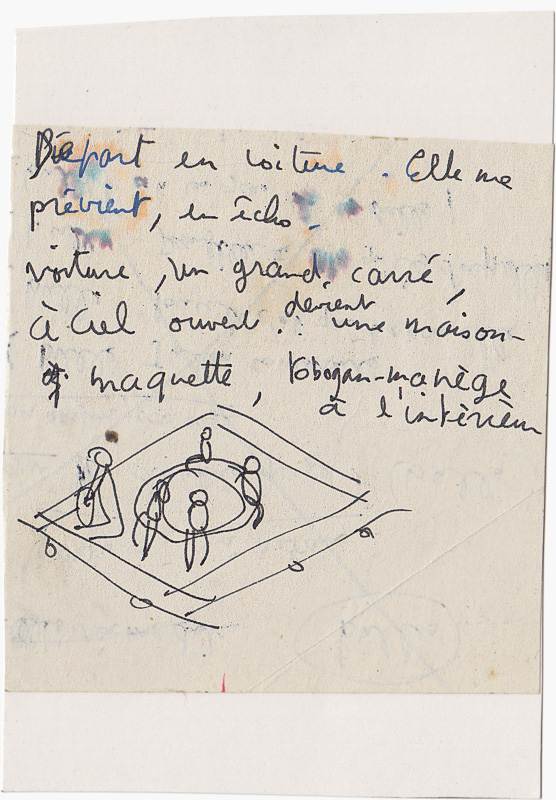 Départ en voiture. Elle me
prévient, en écho.
voiture, un grand carré,
à ciel ouvert. devient une maison-
maquette, tobogan-manège
à l'intérieur